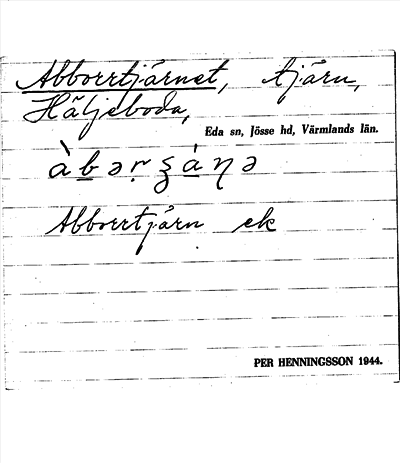 Abborrtjärnet, tjärn,
Häljeboda,
Eda sn, Jösse hd, Värmlands län.
àbərʂánə
Abborrtjärn ek
PER HENNINGSSON 1944.